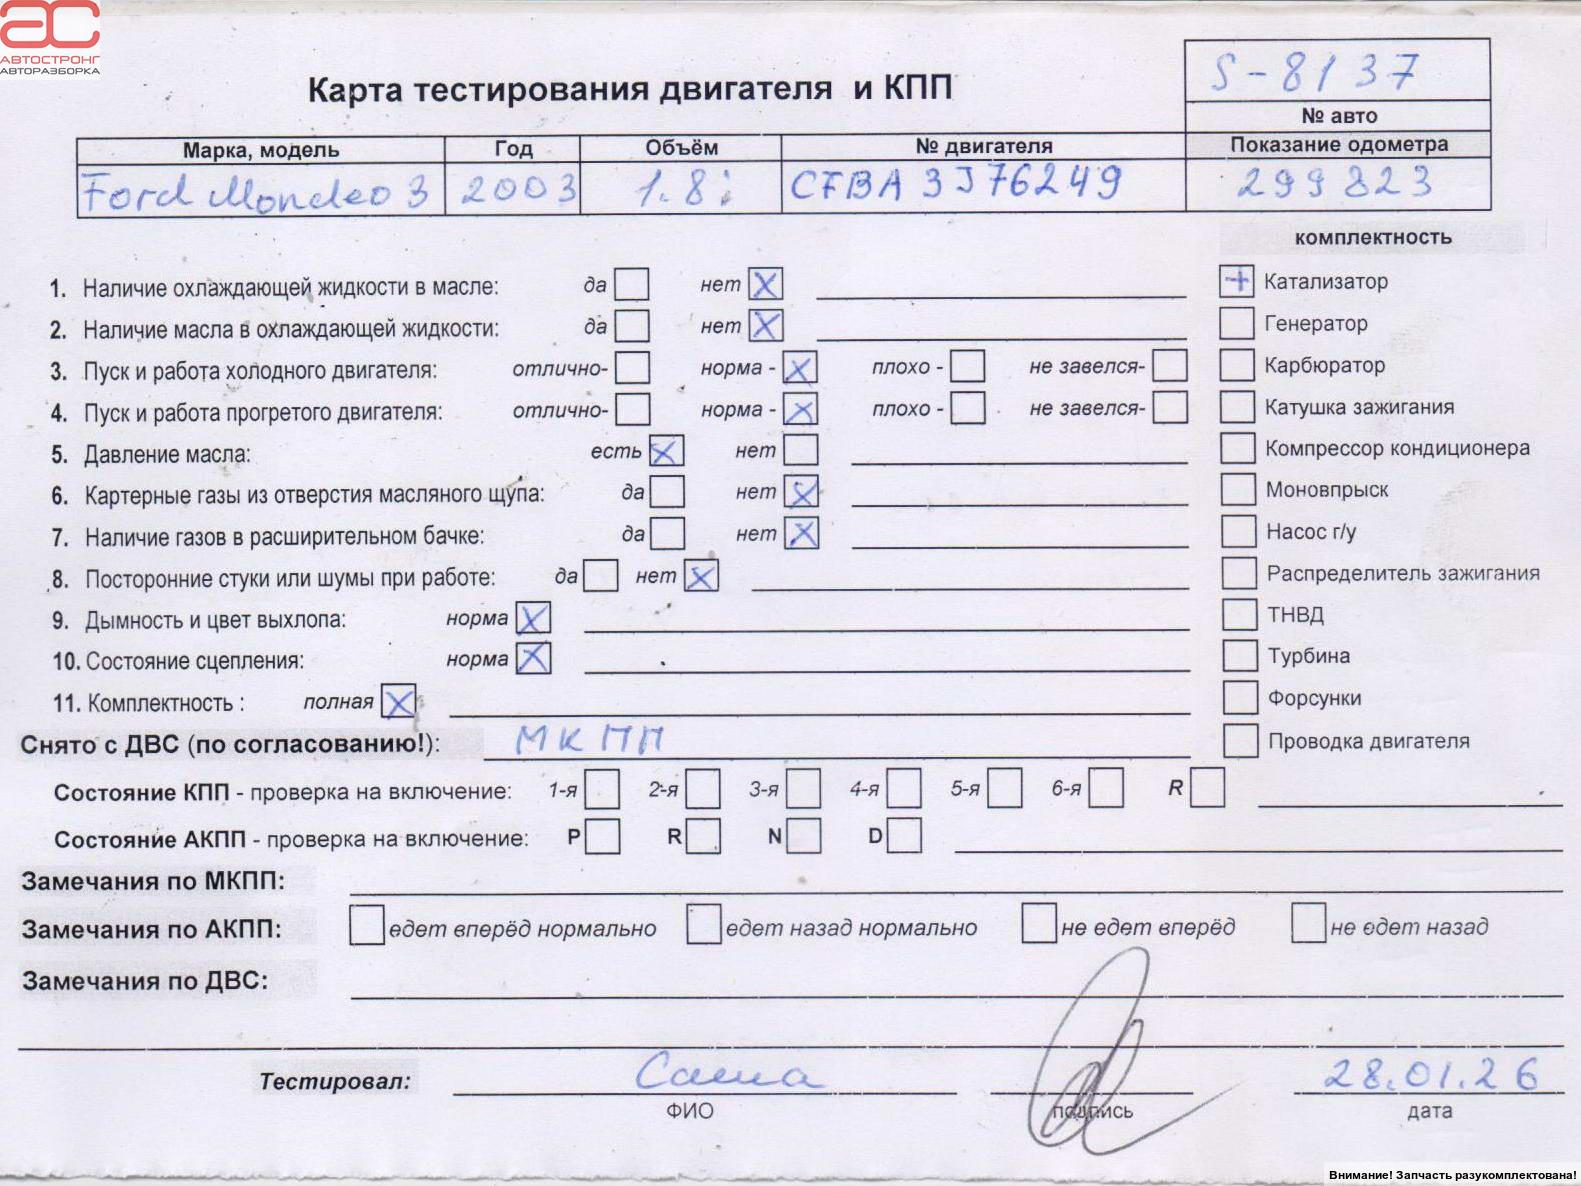 АС
АВТОСТРОНГ
АВТОРАЗБОРКА
Карта тестирования двигателя и КПП
S-8137
№ авто
Марка, модель Год Объём № двигателя Показание одометра
Ford Mondeo 3 2003 1.8i CFBA 3J76249 299823
комплектность
1. Наличие охлаждающей жидкости в масле: да нет X
+ Катализатор
2. Наличие масла в охлаждающей жидкости: да нет X
Генератор
3. Пуск и работа холодного двигателя: отлично- норма - X плохо - не завелся-
Карбюратор
4. Пуск и работа прогретого двигателя: отлично- норма - X плохо - не завелся-
Катушка зажигания
5. Давление масла: есть X нет
Компрессор кондиционера
6. Картерные газы из отверстия масляного щупа: да нет X
Моновпрыск
7. Наличие газов в расширительном бачке: да нет X
Насос г/у
8. Посторонние стуки или шумы при работе: да нет X
Распределитель зажигания
9. Дымность и цвет выхлопа: норма X
ТНВД
10. Состояние сцепления: норма X
Турбина
11. Комплектность : полная X
Форсунки
Снято с ДВС (по согласованию!): МКПП
Проводка двигателя
Состояние КПП - проверка на включение: 1-я 2-я 3-я 4-я 5-я 6-я R
Состояние АКПП - проверка на включение: P R N D
Замечания по МКПП:
Замечания по АКПП: едет вперёд нормально едет назад нормально не едет вперёд не едет назад
Замечания по ДВС:
Тестировал: Саша 28.01.26
ФИО подпись дата
Внимание! Запчасть разукомплектована!